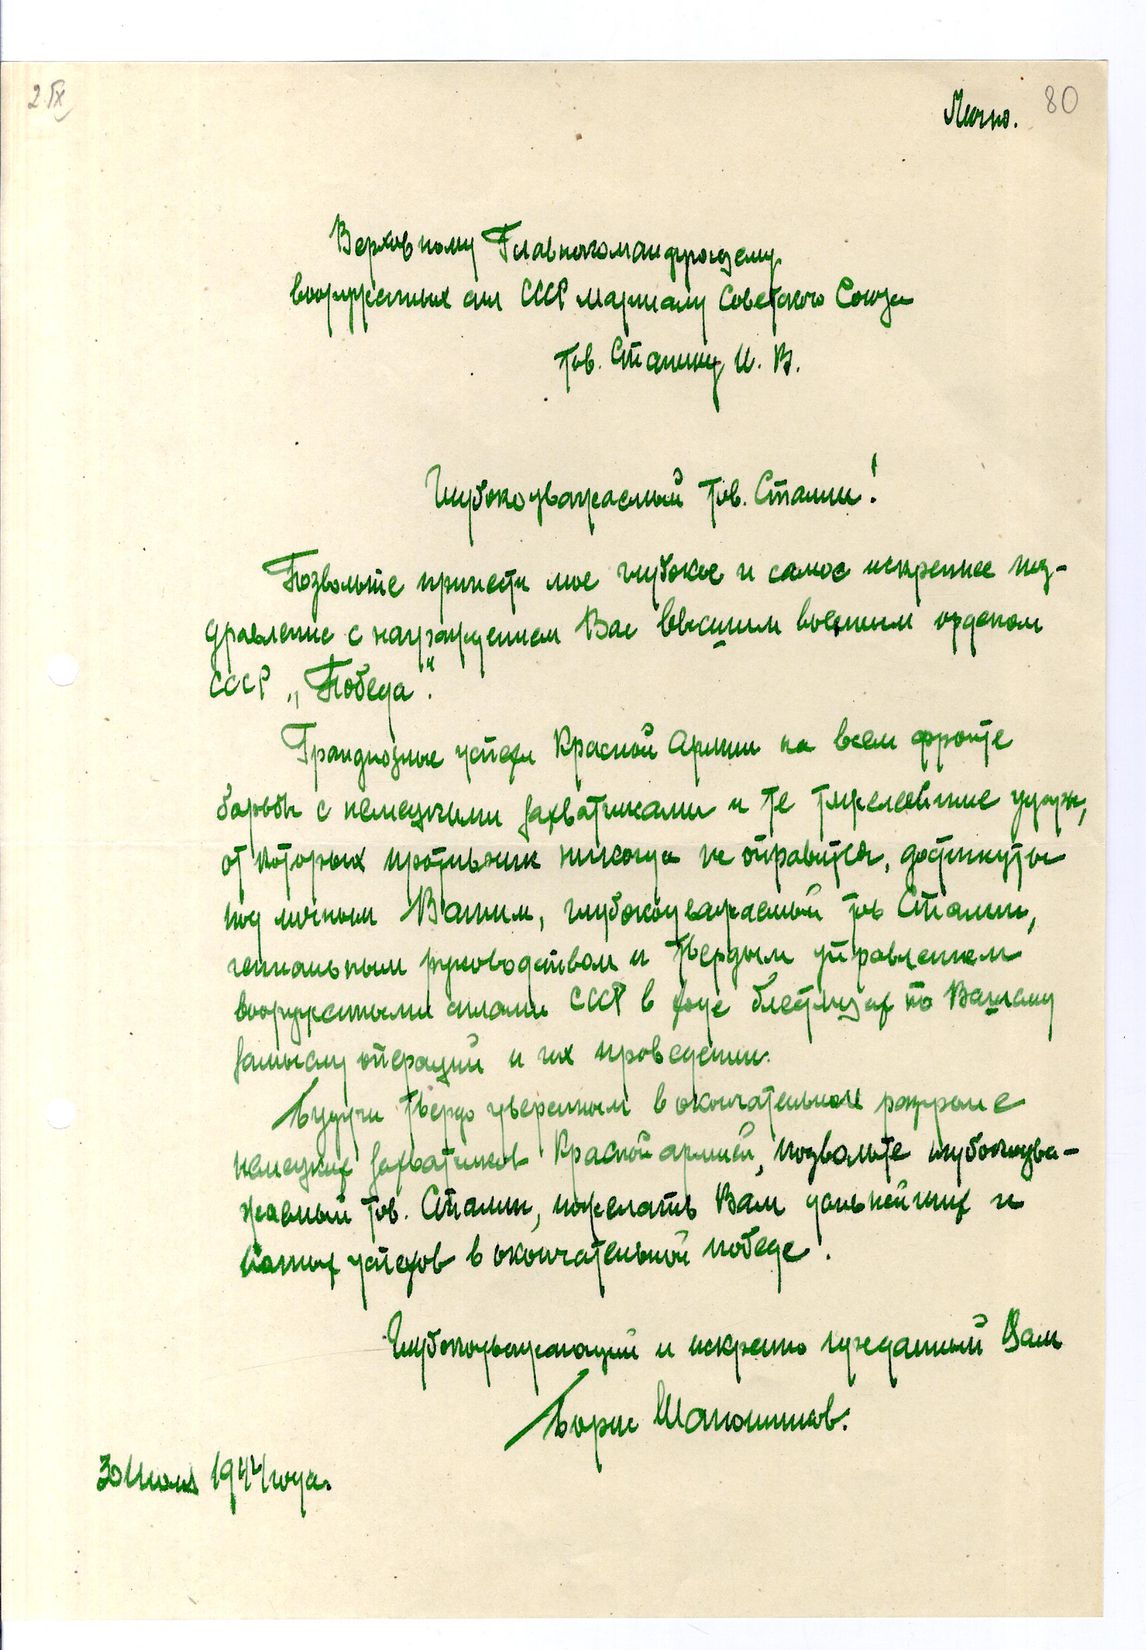 80
Лично.
Верховному Главнокомандующему
вооруженных сил СССР маршалу Советского Союза
тов. Сталину И. В.
Глубокоуважаемый тов. Сталин!
Позвольте принести мое глубокое и самое искреннее поз-
дравление с награждением Вас высшим военным орденом
СССР „Победа".
Грандиозные успехи Красной Армии на всем фронте
борьбы с немецкими захватчиками и те тяжелейшие удары,
от которых противник никогда не оправится, достигнуты
под личным Вашим, глубокоуважаемый тов Сталин,
гениальным руководством и твердым управлением
вооруженными силами СССР в ходе блестящих по Вашему
замыслу операций и их проведении.
Будучи твердо уверенным в окончательном разгроме
немецких захватчиков Красной армией, позвольте глубокоува-
жаемый тов. Сталин, пожелать Вам дальнейших и
успехов в окончательной победе.
Глубокоуважающий и искренно преданный Вам
Борис Шапошников.
30 Июля 1944 года.